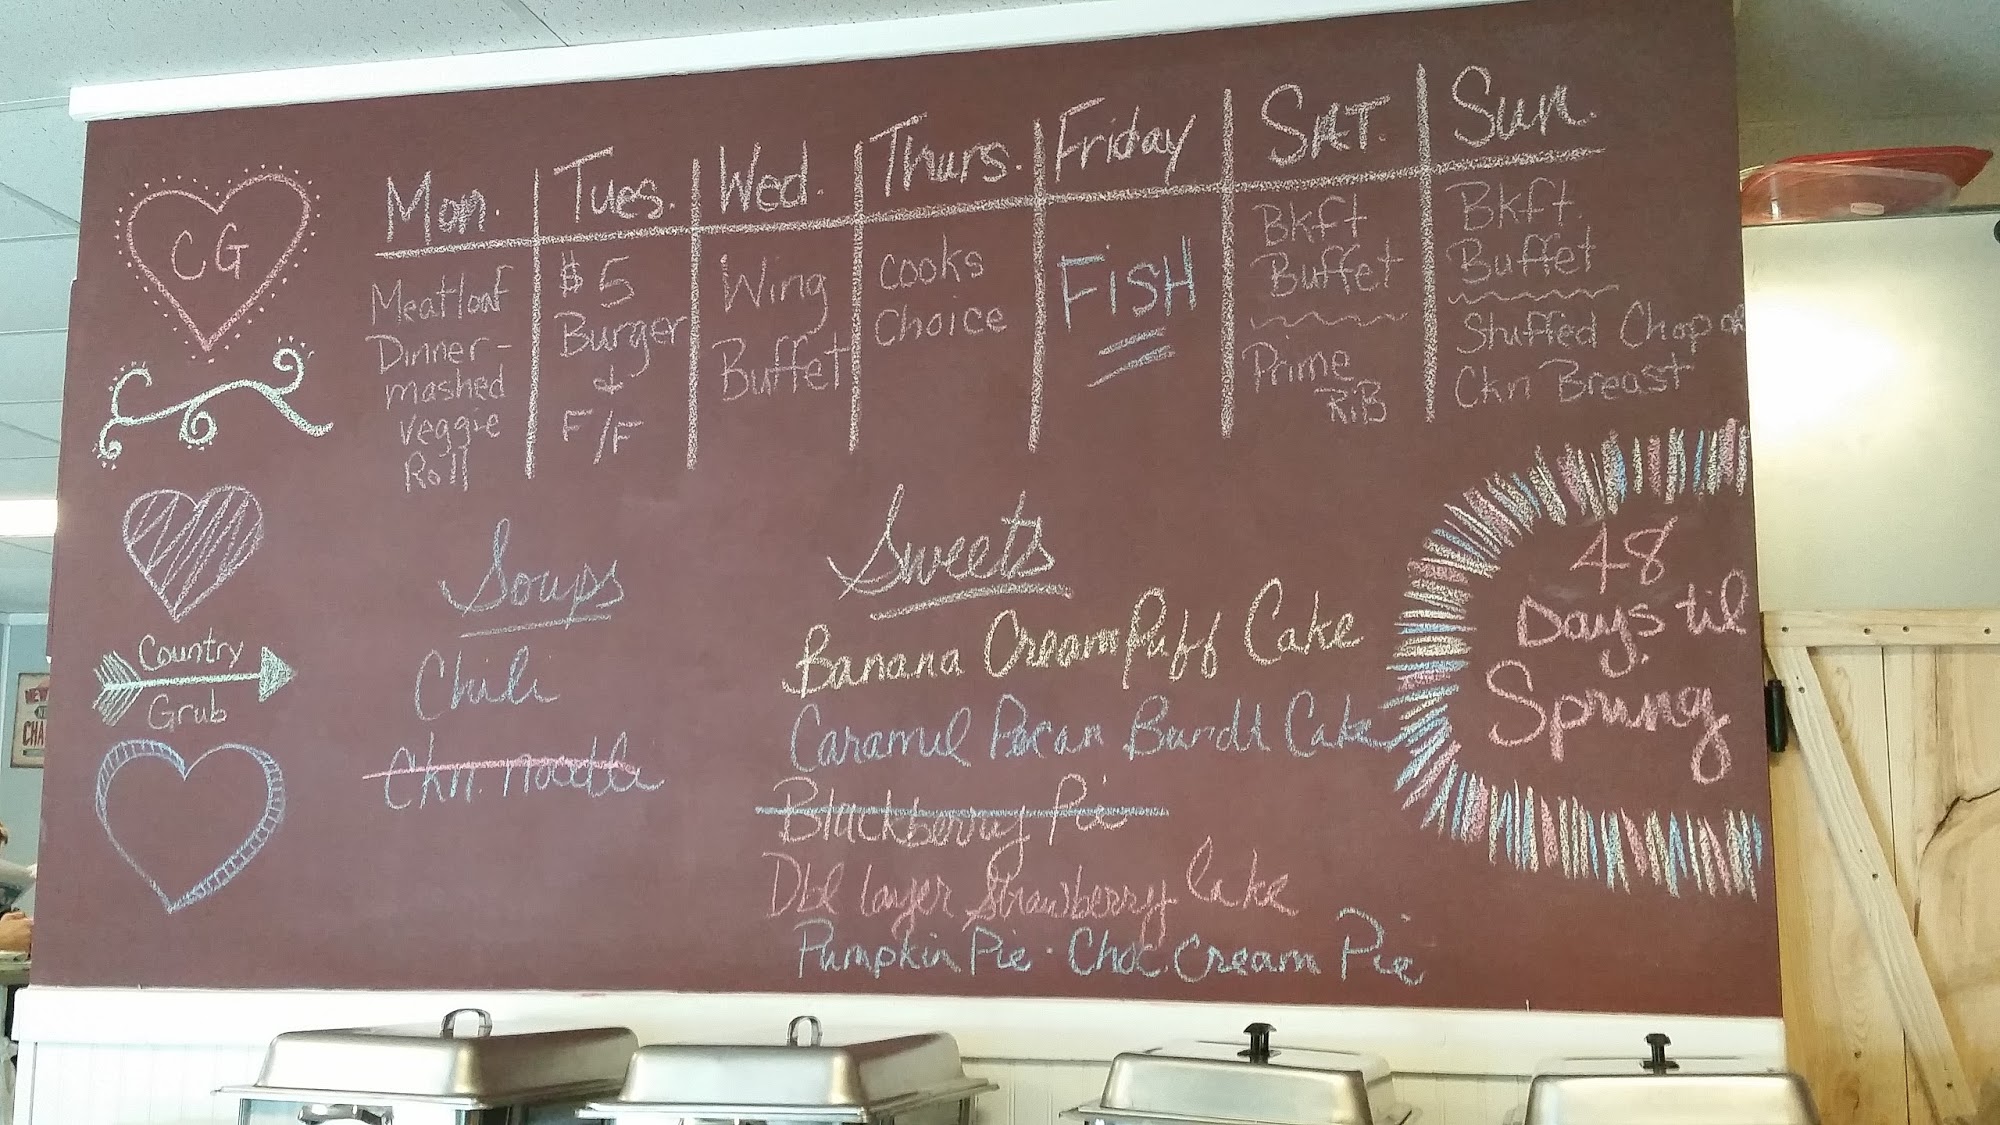 CG
Country
Grub
Mon.
Meatloaf
Dinner-
mashed
veggie
Roll
Tues.
$5
Burger
&
F/F
Wed.
Wing
Buffet
Thurs.
cooks
choice
Friday
FiSH
SAT.
Bkft
Buffet
Prime
RiB
Sun.
Bkft
Buffet
Stuffed Chop or
Ckn Breast
Soups
Chili
Chn. noodle
Sweets
Banana Cream Puff Cake
Caramel Pecan Bundt Cake
Blackberry Pie
Dbl layer Strawberry Cake
Pumpkin Pie · Choc. Cream Pie
48
Days til
Spring